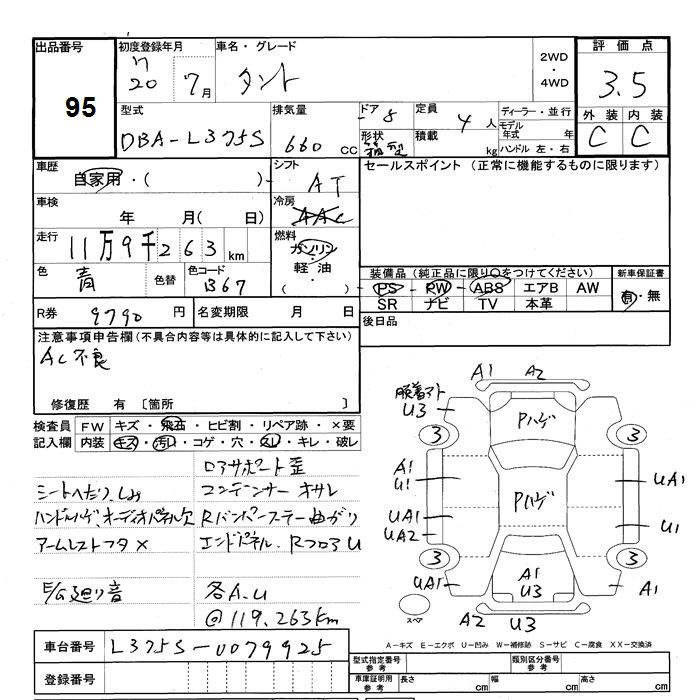 出品番号 95
初度登録年月 H 20 7月
車名・グレード タント
2WD・4WD
評価点 3.5
外装 C 内装 C
型式 DBA-L375S
排気量 660 CC
ドア 5
形状
定員 4人
積載 kg
ディーラー・並行
モデル年式 年
ハンドル 左・右
車歴 自家用・( )
シフト AT
セールスポイント (正常に機能するものに限ります)
車検 年 月( 日)
冷房 AAC
走行 11万9千263km
燃料 ガソリン・軽油・( )
色 青 色替 色コード B67
装備品 (純正品に限り○をつけてください)
新車保証書 有・無
PS PW ABS エアB AW
SR ナビ TV 本革
R券 9790円
名変期限 月 日
後日品
注意事項申告欄(不具合内容等は具体的に記入して下さい)
AC不良
修復歴 有 〔箇所 〕
検査員記入欄
FW キズ・飛石・ヒビ割・リペア跡・×要
内装 キズ・汚れ・コゲ・穴・スレ・キレ・破レ
ロアサポート歪
シートへたり、しみ コンデンサー キサレ
ハンドルハゲ、オーディオパネル欠 Rバンパーステー曲がり
アームレストフタ× エンドパネル、Rフロア U
E/G廻り音 各A.U
@119,263km
A1 A2
脱着アト U3
Pハゲ
3 3
A1 U1
UA1
Pハゲ
UA1 UA2
U1
3 3
UA1
A1 U3
A1
スペア
A2 U3
車台番号 L375S-0079925
A－キズ E－エクボ U－凹み W－補修跡 S－サビ C－腐食 XX－交換済
登録番号
型式指定番号 参考
類別区分番号 参考
車庫証明用 参考 長さ cm 幅 cm 高さ cm